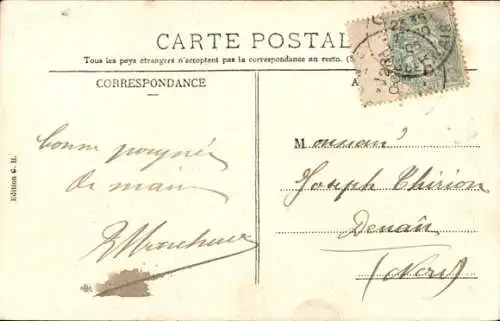 CARTE POSTALE
Tous les pays étrangers n'acceptent pas la correspondance au recto. (S
CORRESPONDANCE
A
bonne poignée
de main
Monsieur
Joseph Thirion
Denain
(Nord)
Edition G. H.